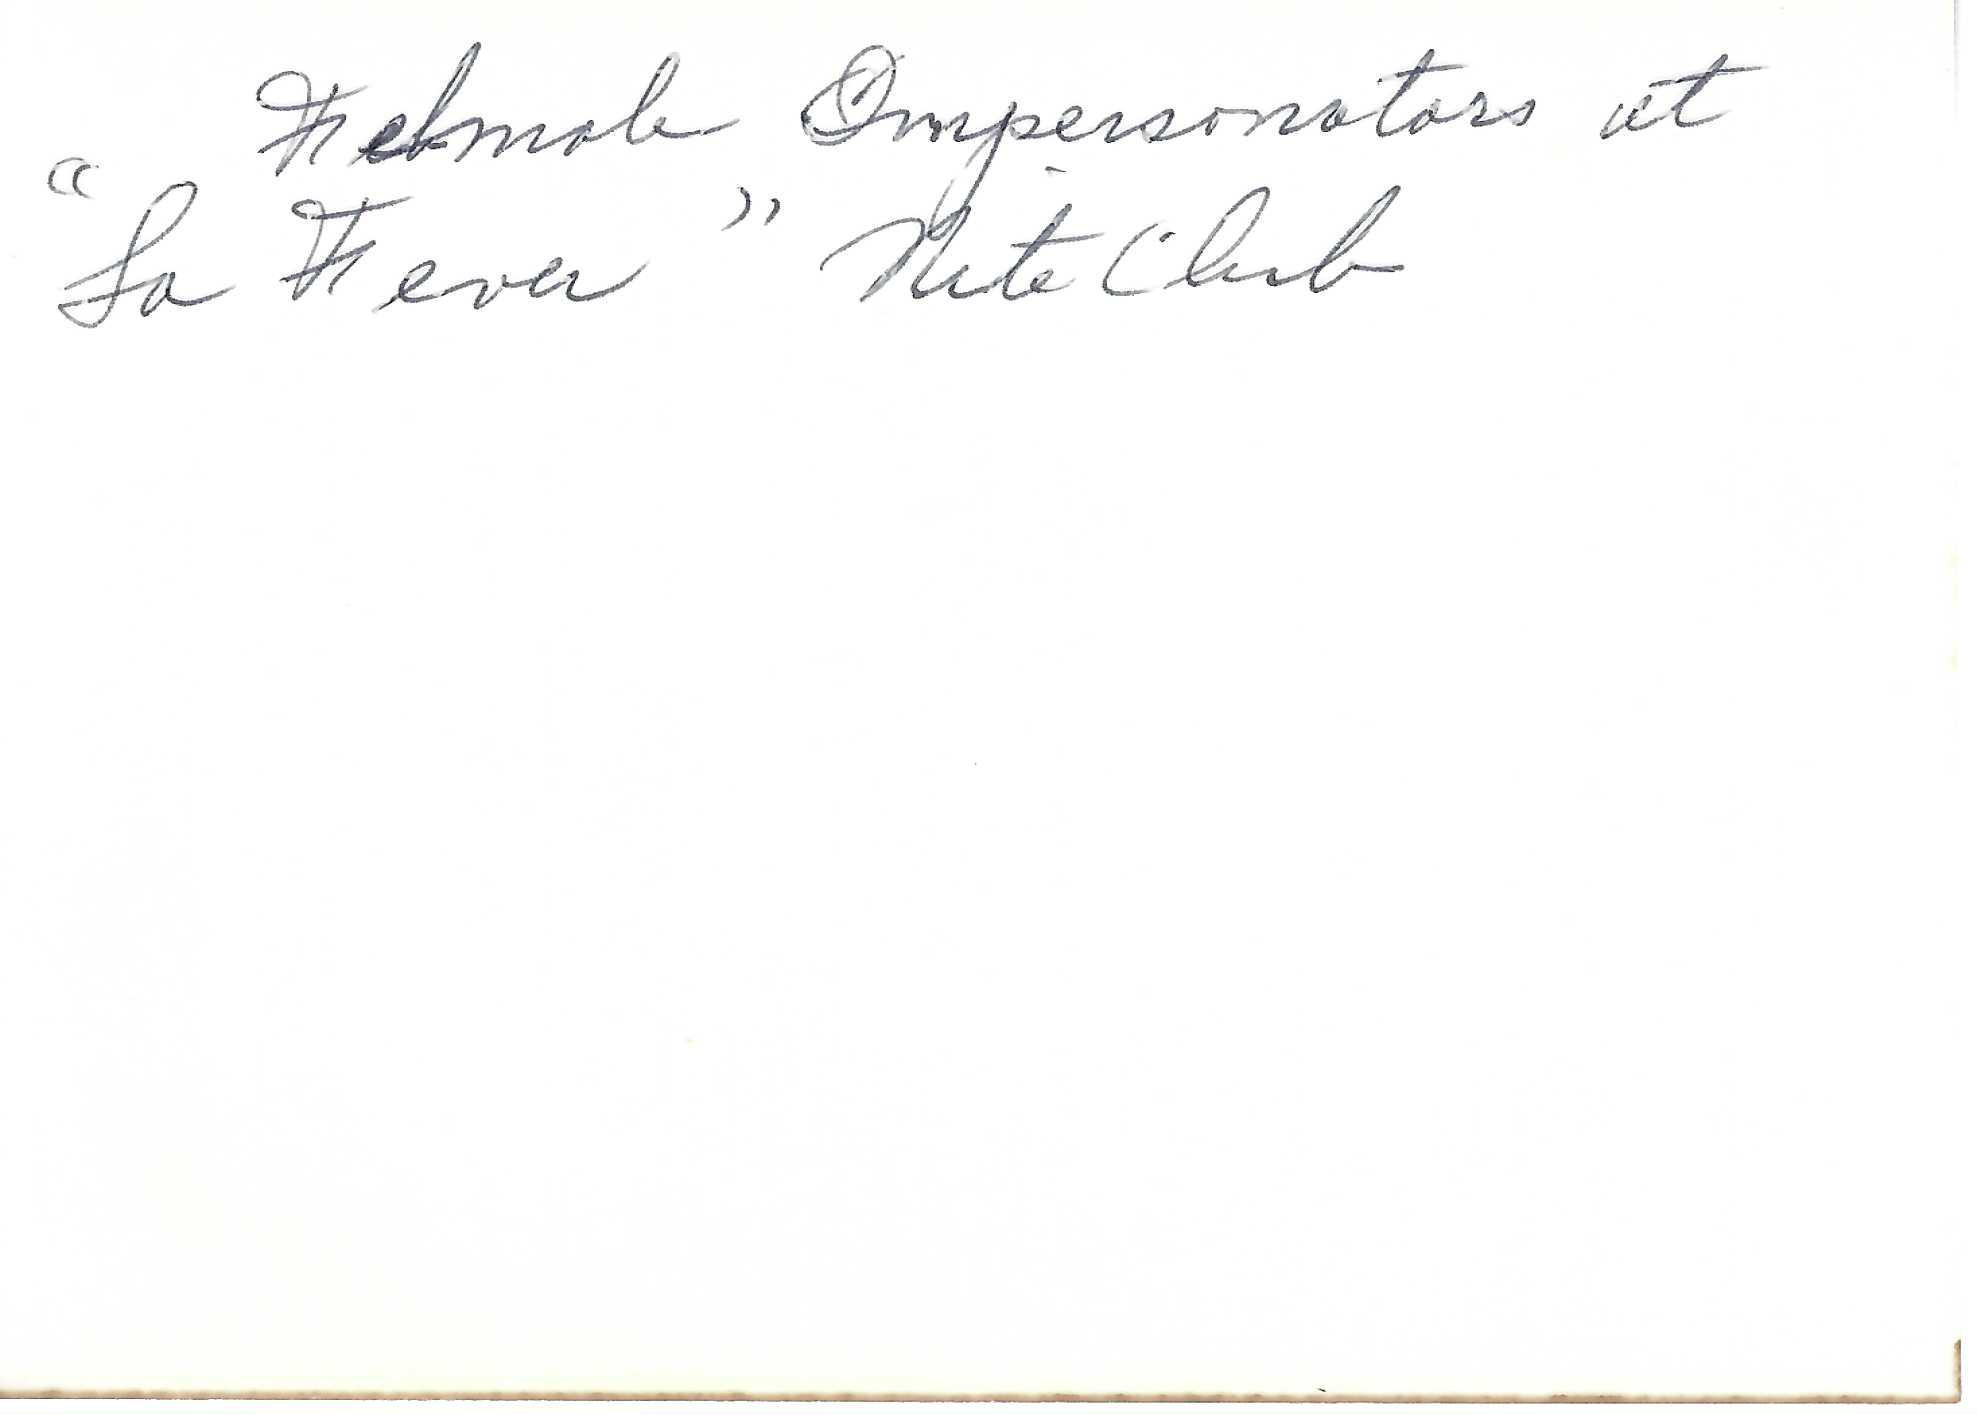 Female Impersonators at
"La Fever" Nite Club